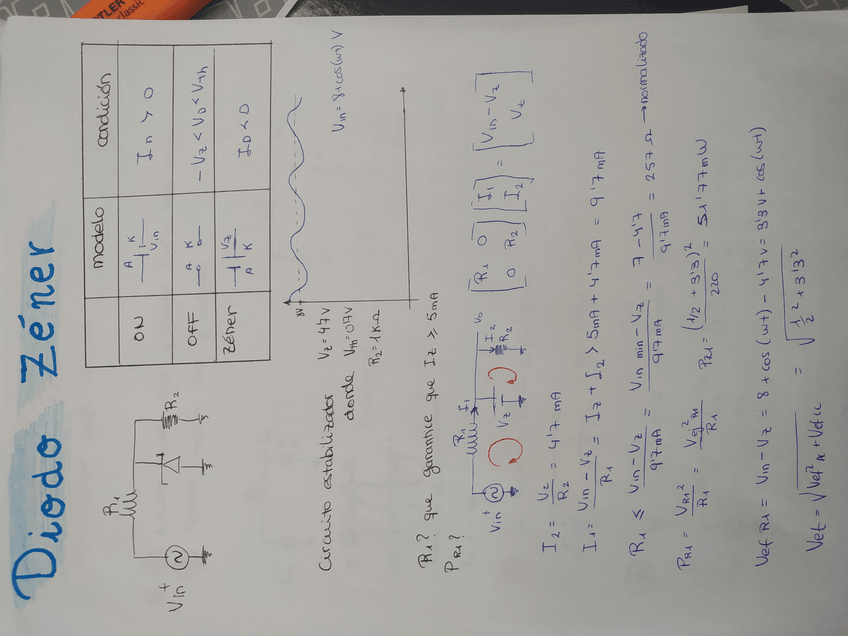 Diodo Zéner
modelo condición
ON A K Vin In > 0
OFF A K -Vz < VD < Vth
Zéner A Vz K ID < 0
Vin + R1 R2
Circuito estabilizador Vz = 4'7V
donde Vth = 0'7V
R2 = 1KΩ
8V
Vin = 8 + cos(wt) V
R1? que garantice que Iz ≥ 5mA
PR1?
Vin + R1 I1 Vz I2 R2 Vo
[R1 0 0 R2] [I1 I2] = [Vin - Vz Vz]
I2 = Vz/R2 = 4'7 mA
I1 = Vin - Vz/R1 = Iz + I2 > 5mA + 4'7mA = 9'7mA
R1 ≤ Vin - Vz/9'7mA = Vin min - Vz/9'7mA = 7 - 4'7/9'7mA = 257 Ω → normalizado
PR1 = VR1²/R1 = Vef R1²/R1 PR1 = (1/2 + 3'3)²/220 = 51'77mW
Vef R1 = Vin - Vz = 8 + cos(wt) - 4'7V = 3'3V + cos(wt)
Vef = √Vef² A + Vef cc = √1/2² + 3'3²
STAEDTLER
classic